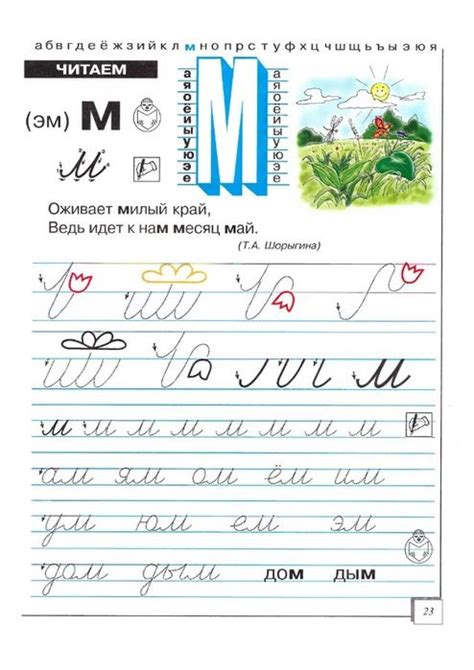 а б в г д е ё ж з и й к л м н о п р с т у ф х ц ч ш щ ъ ы ь э ю я
ЧИТАЕМ
(эм) м
м
а я о е и ы у ю э е
М
а я о е и ы у ю э е
Оживает милый край,
Ведь идет к нам месяц май.
(Т.А. Шорыгина)
м
м м м м м м м м
ам ям ом ём им
ум юм ем эм
дом дым дом дым
23